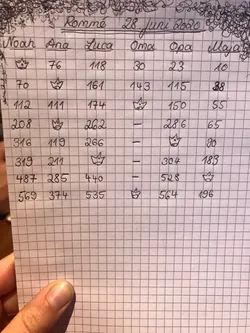 Rommé 28 Juni 2020
Noah Ana Luca Oma Opa Maja
76 118 30 23 10
70 161 143 115
112 111 174 150 55
208 262 – 286 65
316 119 266 – 90
319 211 – 304 183
487 285 440 – 528
569 374 535 564 196